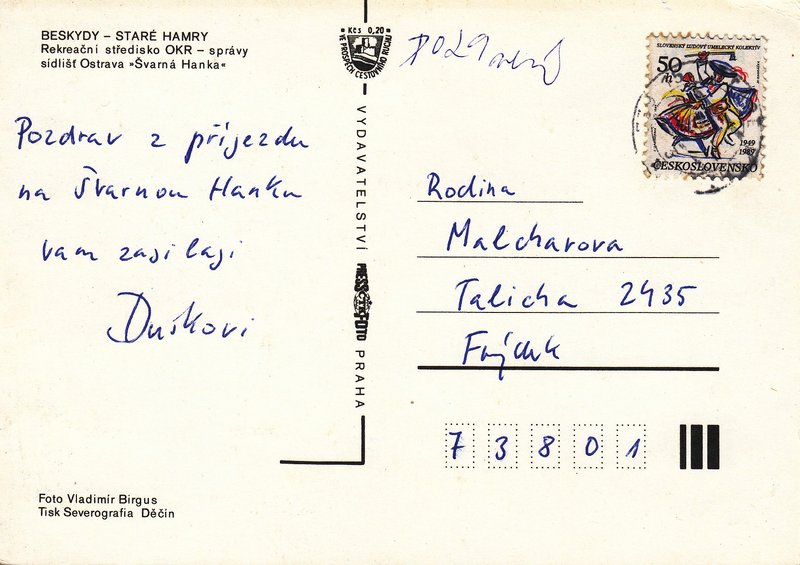 BESKYDY – STARÉ HAMRY
Rekreační středisko OKR – správy
sídlišť Ostrava »Švarná Hanka«
Pozdrav z příjezdu
na Švarnou Hanku
vam zasilaji
Duškovi
Foto Vladimír Birgus
Tisk Severografia Děčín
Kčs 0,20
VE PROSPĚCH CESTOVNÍHO RUCHU
VYDAVATELSTVÍ
PRESSFOTO
PRAHA
SLOVENSKÝ ĽUDOVÝ UMELECKÝ KOLEKTÍV
50 h
1949
1989
ČESKOSLOVENSKO
Rodina
Malcharova
Talicha 2435
Frýdek
73801